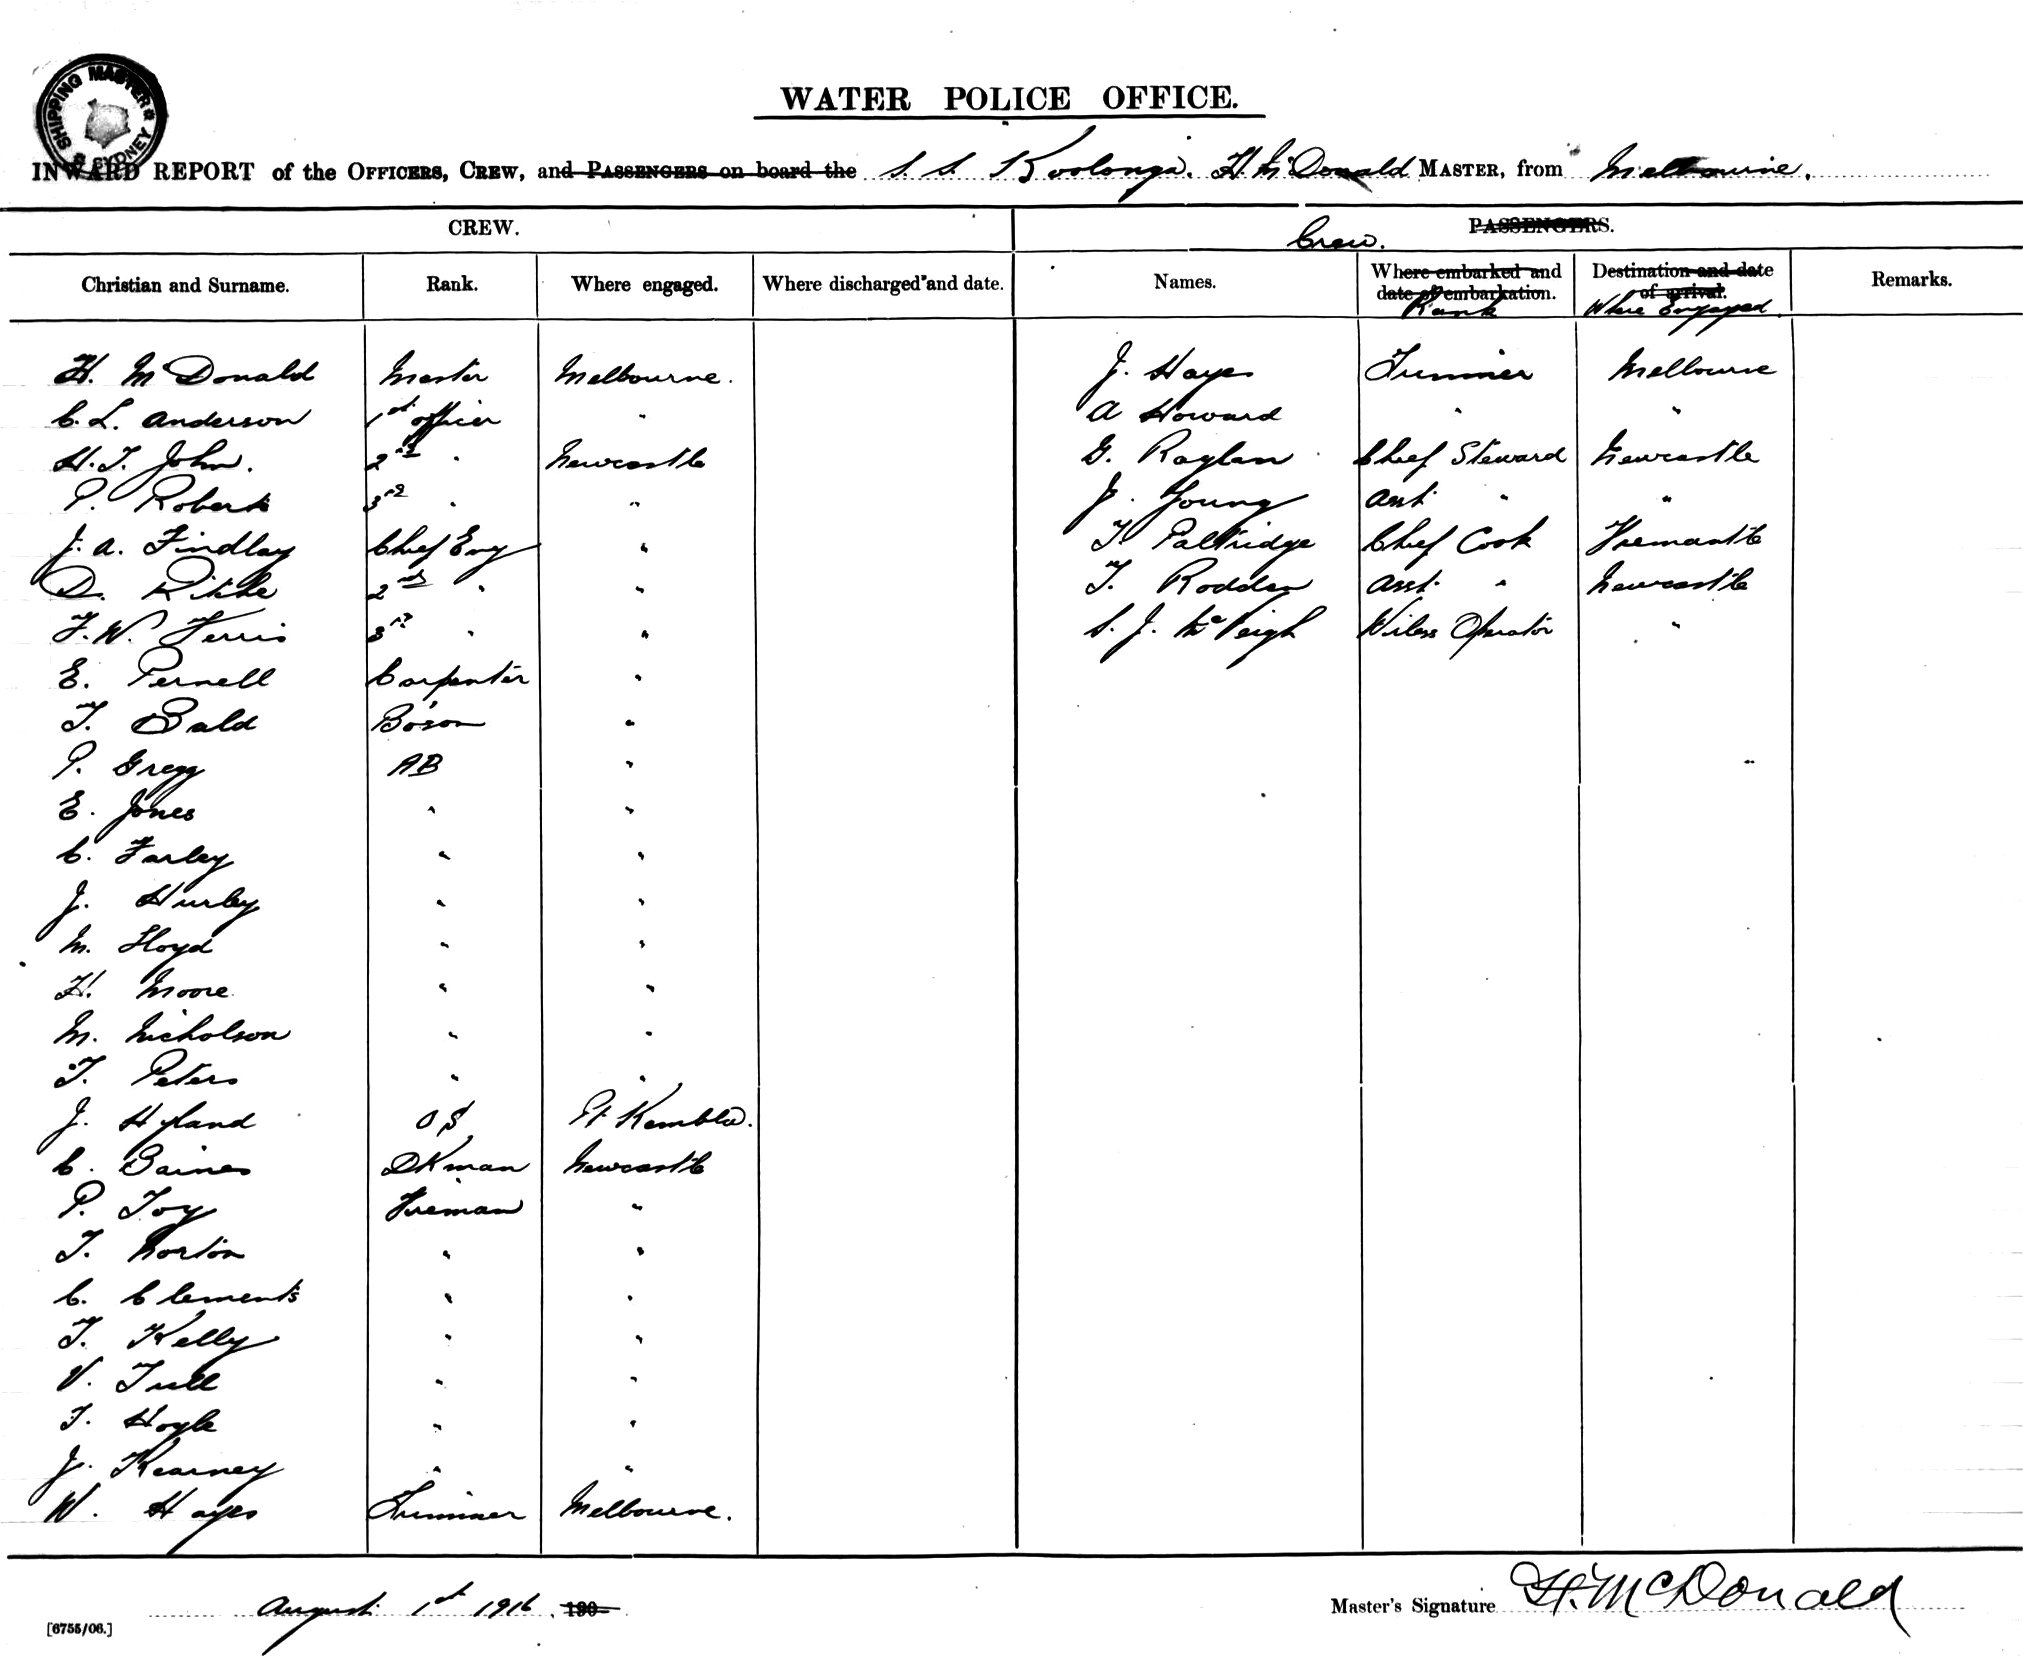 SHIPPING MASTER SYDNEY
WATER POLICE OFFICE.
INWARD REPORT of the OFFICERS, CREW, and PASSENGERS on board the S. S. Koolonga. H. McDonald MASTER, from Melbourne.
CREW. Crew. PASSENGERS.
Christian and Surname. Rank. Where engaged. Where discharged and date. Names. Where embarked and date of embarkation. Rank Destination and date of arrival. Where Engaged Remarks.
H. McDonald Master Melbourne. J. Hayes Trimmer Melbourne
C. L. Anderson 1st officer " A Howard " "
H. T. John. 2nd " Newcastle G. Raglan Chief Steward Newcastle
P. Roberts 3rd " " J. Young Asst. " "
J. A. Findlay Chief Eng " T. Paltridge Chief Cook Fremantle
D. Ritchie 2nd " " T. Rodden Asst. " Newcastle
F. W. Ferris 3rd " " S. J. McVeigh Wireless Operator "
E. Pernell Carpenter "
T. Bald Bo'son "
P. Gregg AB "
E. Jones " "
C. Farley " "
J. Hurley " "
M. Lloyd " "
H. Moore " "
M. Nicholson " "
T. Peters " "
J. Hyland OS Pt Kembla.
C. Baines DKman Newcastle
P. Joy Fireman "
T. Norton " "
C. Clements " "
T. Kelly " "
V. Tull " "
T. Hoyle " "
J. Kearney " "
W. Hayes Trimmer Melbourne.
August 1st 1916 190
Master's Signature H. McDonald
[6755/06.]